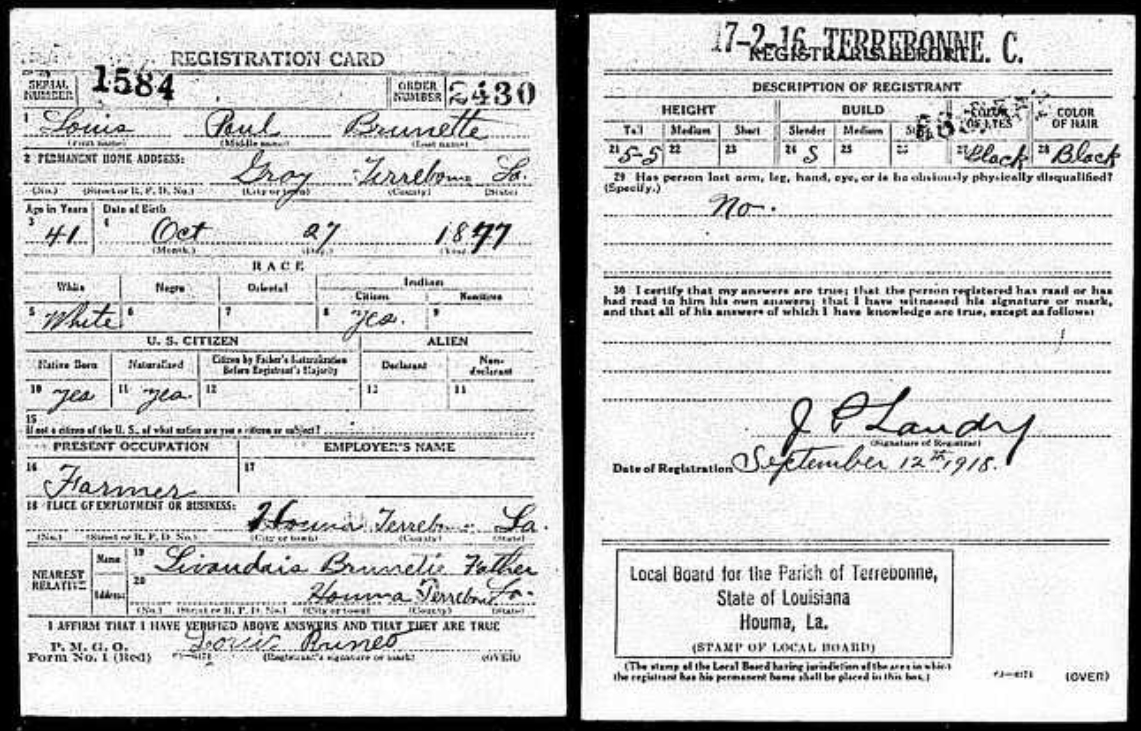 REGISTRATION CARD
SERIAL NUMBER 1584 ORDER NUMBER 2430
1 Louis Paul Brunette
(First name) (Middle name) (Last name)
2 PERMANENT HOME ADDRESS:
Gray Terrebonne La.
(No.) (Street or R. F. D. No.) (City or town) (County) (State)
Age in Years Date of Birth
3 41 4 Oct 27 1877
(Month.) (Day.) (Year.)
RACE
White Negro Oriental Indian
Citizen Noncitizen
5 White 6 7 8 yes. 9
U. S. CITIZEN ALIEN
Native Born Naturalized Citizen by Father's Naturalization Before Registrant's Majority Declarant Non-declarant
10 yes 11 yea. 12 13 14
15
If not a citizen of the U. S., of what nation are you a citizen or subject?
PRESENT OCCUPATION EMPLOYER'S NAME
16 Farmer 17
18 PLACE OF EMPLOYMENT OR BUSINESS:
Houma Terrebonne La.
(No.) (Street or R. F. D. No.) (City or town) (County) (State)
NEAREST RELATIVE
Name 19 Livaudais Brunette Father
Address 20 Houma Terrebonne La.
(No.) (Street or R. F. D. No.) (City or town) (County) (State)
I AFFIRM THAT I HAVE VERIFIED ABOVE ANSWERS AND THAT THEY ARE TRUE
P. M. G. O.
Form No. 1 (Red) Bruneo
(Registrant's signature or mark) (OVER)
17-2-16 TERREBONNE. C.
REGISTRAR'S REPORT
DESCRIPTION OF REGISTRANT
HEIGHT BUILD COLOR OF EYES COLOR OF HAIR
Tall Medium Short Slender Medium Stout
21 5-5 22 23 24 S 25 26 27 Black 28 Black
29 Has person lost arm, leg, hand, eye, or is he obviously physically disqualified?
(Specify.)
No.
30 I certify that my answers are true; that the person registered has read or has
had read to him his own answers; that I have witnessed his signature or mark,
and that all of his answers of which I have knowledge are true, except as follows:
J P Landry
(Signature of Registrar)
Date of Registration September 12th, 1918.
Local Board for the Parish of Terrebonne,
State of Louisiana
Houma, La.
(STAMP OF LOCAL BOARD)
(The stamp of the Local Board having jurisdiction of the area in which
the registrant has his permanent home shall be placed in this box.)
(OVER)